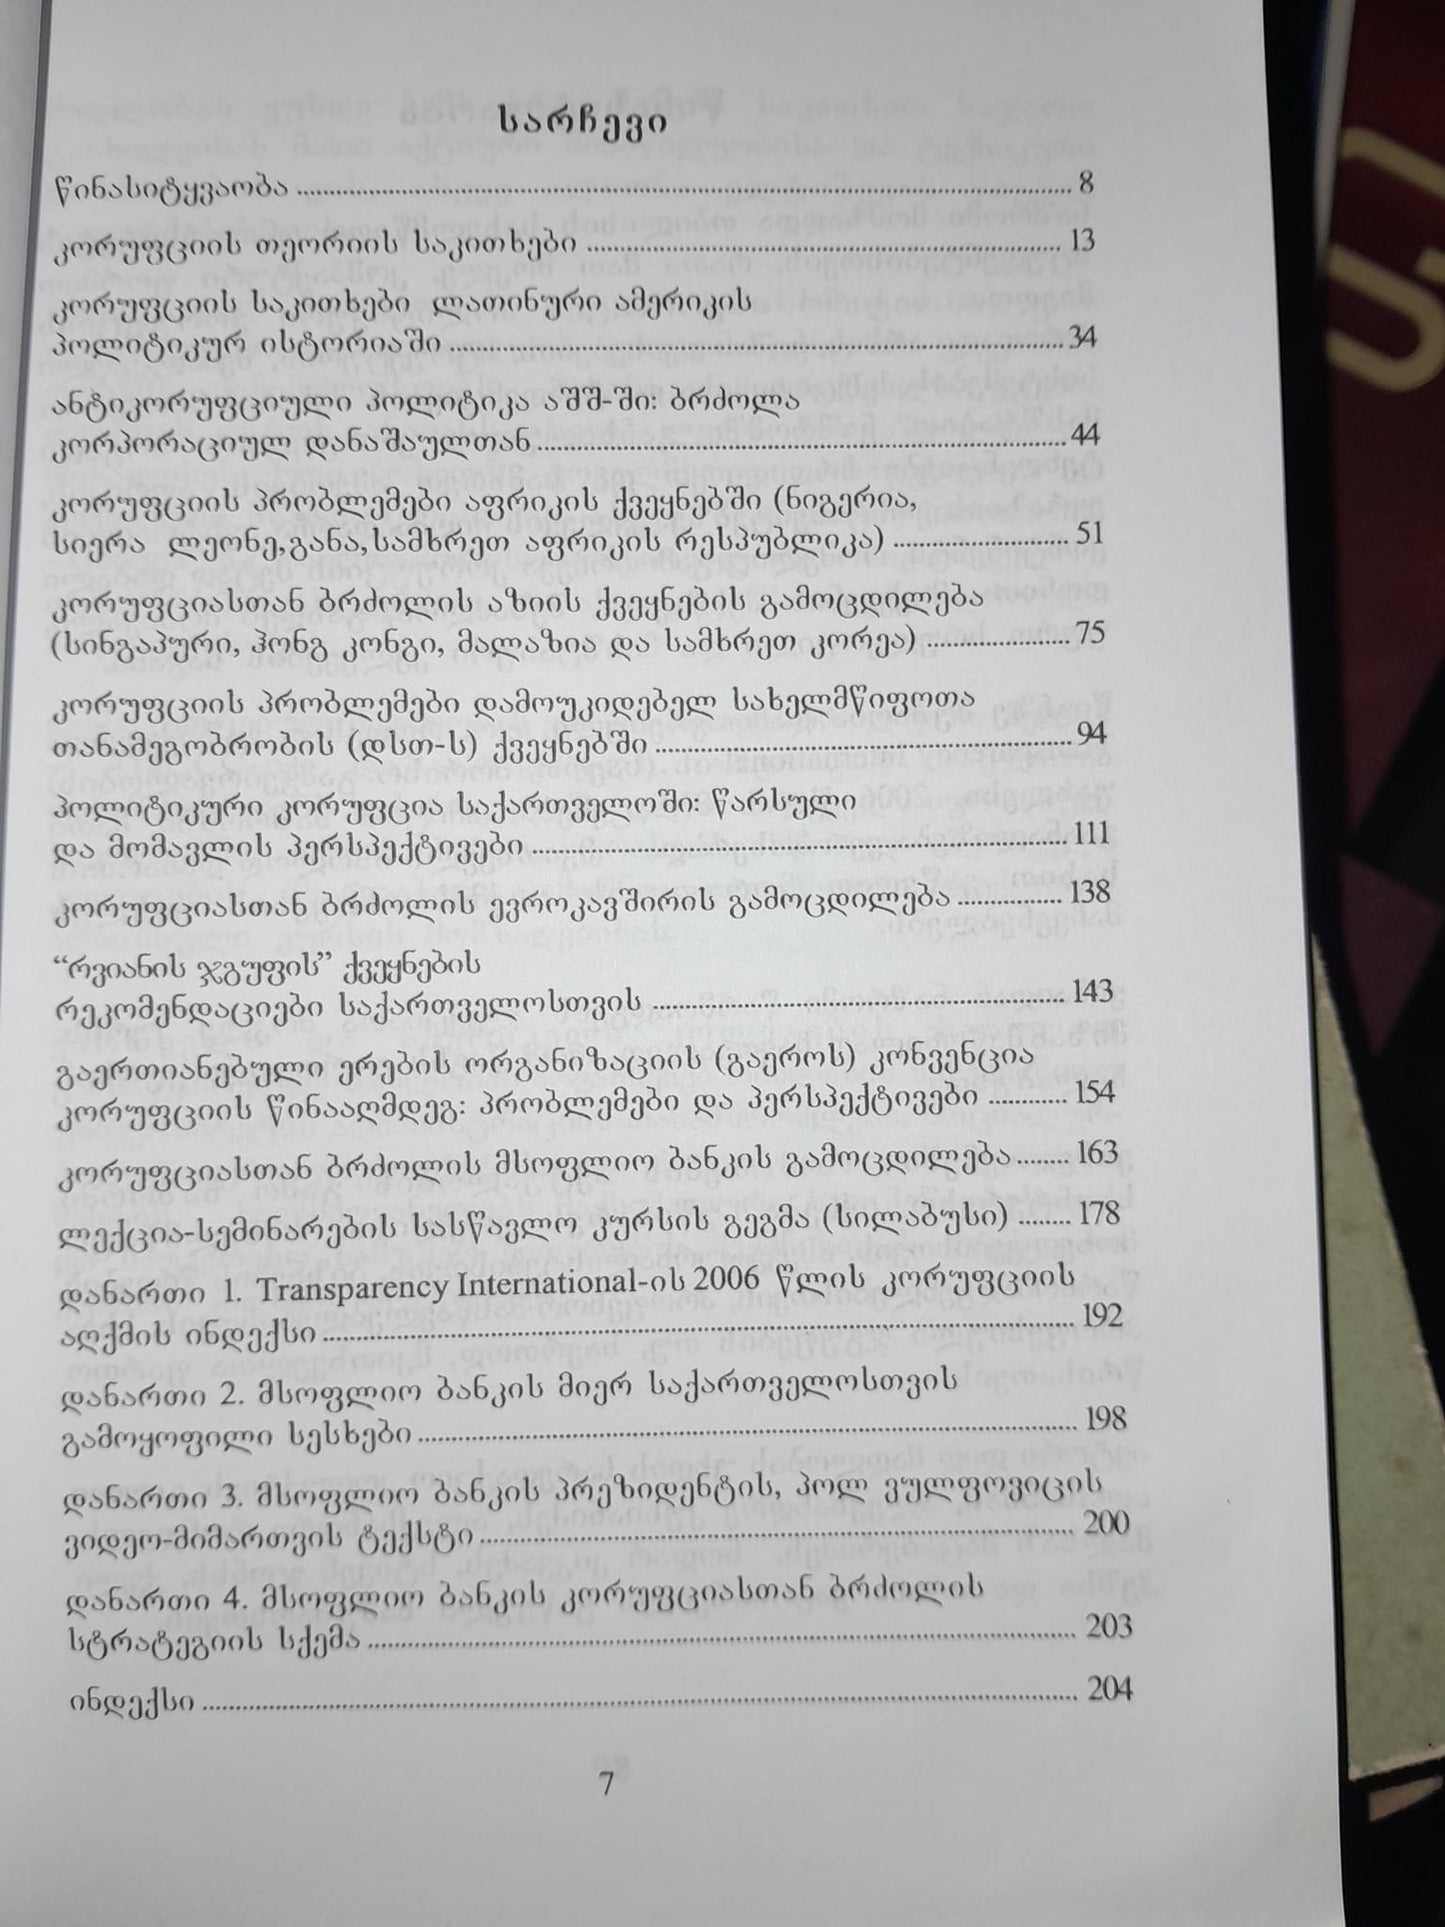 სარჩევი
წინასიტყვაობა ........ 8
კორუფციის თეორიის საკითხები ........ 13
კორუფციის საკითხები ლათინური ამერიკის
პოლიტიკურ ისტორიაში ........ 34
ანტიკორუფციული პოლიტიკა აშშ-ში: ბრძოლა
კორპორაციულ დანაშაულთან ........ 44
კორუფციის პრობლემები აფრიკის ქვეყნებში (ნიგერია,
სიერა ლეონე,განა,სამხრეთ აფრიკის რესპუბლიკა) ........ 51
კორუფციასთან ბრძოლის აზიის ქვეყნების გამოცდილება
(სინგაპური, ჰონგ კონგი, მალაზია და სამხრეთ კორეა) ........ 75
კორუფციის პრობლემები დამოუკიდებელ სახელმწიფოთა
თანამეგობრობის (დსთ-ს) ქვეყნებში ........ 94
პოლიტიკური კორუფცია საქართველოში: წარსული
და მომავლის პერსპექტივები ........ 111
კორუფციასთან ბრძოლის ევროკავშირის გამოცდილება ........ 138
“რვიანის ჯგუფის” ქვეყნების
რეკომენდაციები საქართველოსთვის ........ 143
გაერთიანებული ერების ორგანიზაციის (გაეროს) კონვენცია
კორუფციის წინააღმდეგ: პრობლემები და პერსპექტივები ........ 154
კორუფციასთან ბრძოლის მსოფლიო ბანკის გამოცდილება ........ 163
ლექცია-სემინარების სასწავლო კურსის გეგმა (სილაბუსი) ........ 178
დანართი 1. Transparency International-ის 2006 წლის კორუფციის
აღქმის ინდექსი ........ 192
დანართი 2. მსოფლიო ბანკის მიერ საქართველოსთვის
გამოყოფილი სესხები ........ 198
დანართი 3. მსოფლიო ბანკის პრეზიდენტის, პოლ ვულფოვიცის
ვიდეო-მიმართვის ტექსტი ........ 200
დანართი 4. მსოფლიო ბანკის კორუფციასთან ბრძოლის
სტრატეგიის სქემა ........ 203
ინდექსი ........ 204
7